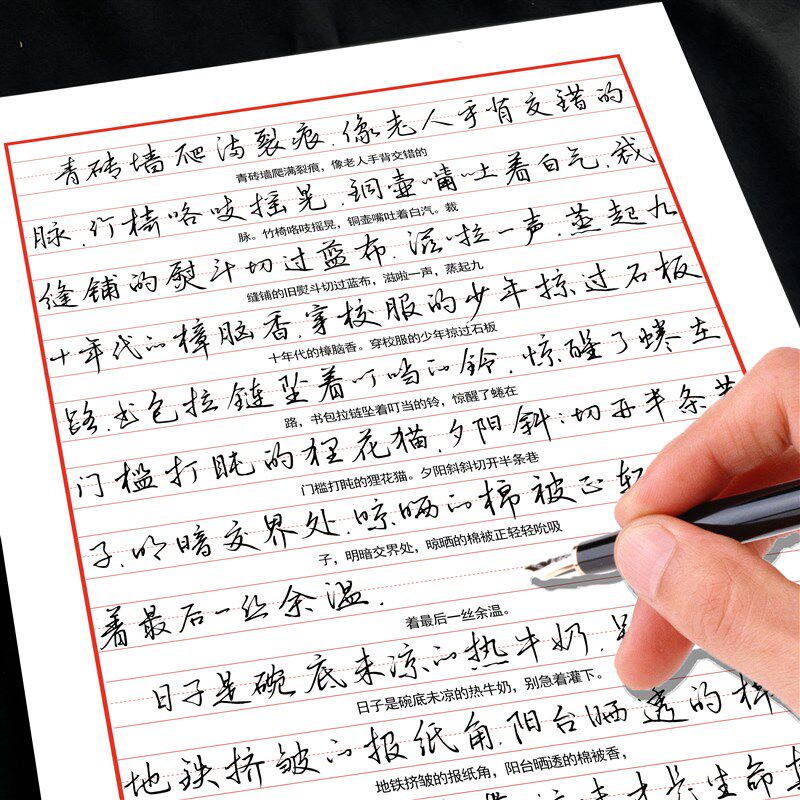 青砖墙爬满裂痕.像老人手背交错的
青砖墙爬满裂痕，像老人手背交错的
脉.竹椅咯吱摇晃.铜壶嘴吐着白气.裁
脉。竹椅咯吱摇晃，铜壶嘴吐着白汽。裁
缝铺的熨斗切过蓝布.滋啦一声.蒸起九
缝铺的旧熨斗切过蓝布，滋啦一声，蒸起九
十年代的樟脑香.穿校服的少年掠过石板
十年代的樟脑香。穿校服的少年掠过石板
路.书包拉链坠着叮当的铃.惊醒了蜷在
路，书包拉链坠着叮当的铃，惊醒了蜷在
门槛打盹的狸花猫.夕阳斜:切开半条
门槛打盹的狸花猫。夕阳斜斜切开半条巷
子.明暗交界处.晾晒的棉被正轻
子，明暗交界处，晾晒的棉被正轻轻吮吸
着最后一丝余温.
着最后一丝余温。
日子是碗底未凉的热牛奶.
日子是碗底未凉的热牛奶，别急着灌下。
地铁挤皱的报纸角.阳台晒透的棉
地铁挤皱的报纸角，阳台晒透的棉被香，
生命